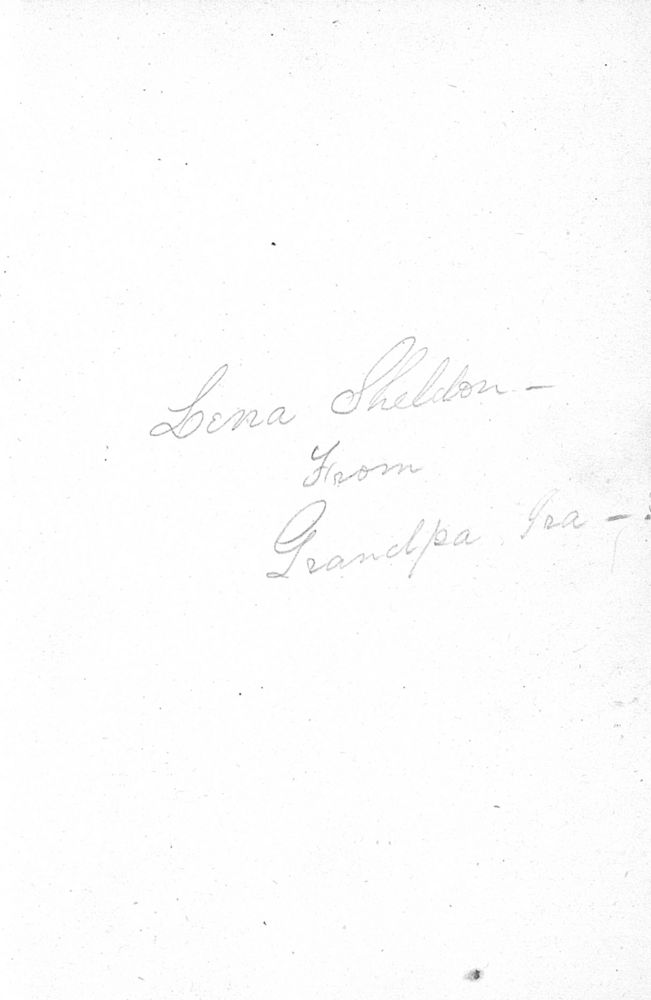 Lena Sheldon –
From
Grandpa Ira –